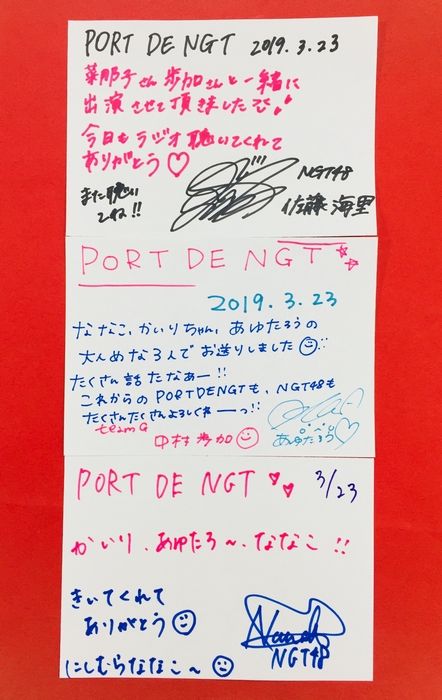 PORT DE NGT 2019.3.23
菜那子さん歩加さんと一緒に
出演させて頂きましたで♪
今日もラジオ聴いてくれて
ありがとう♡
また聴い
てね!!
NGT48
佐藤海里
PORT DE NGT
2019.3.23
ななこ、かいりちゃん、あゆたろうの
大人めな3人でお送りしました
たくさん話たなあー!!
これからのPORTDENGTも、NGT48も
たくさんたくさんよろしくねーっ!!
teamG
中村歩加
あゆたろう♡
PORT DE NGT 3/23
かいり、あゆたろ〜、ななこ!!
きいてくれて
ありがとう
NGT48
にしむらななこ〜